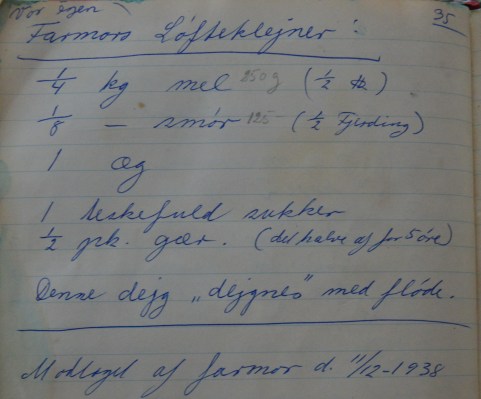 Vor egen
35
Farmors Løfteklejner:
1/4 kg mel 250 g (1/2 lb)
1/8 — smør 125 — (1/2 Fjerding)
1 æg
1 teskefuld sukker
1/2 pk. gær. (det halve af for 5 øre)
Denne dejg „dejgnes" med fløde.
Modtaget af farmor d. 11/12-1938